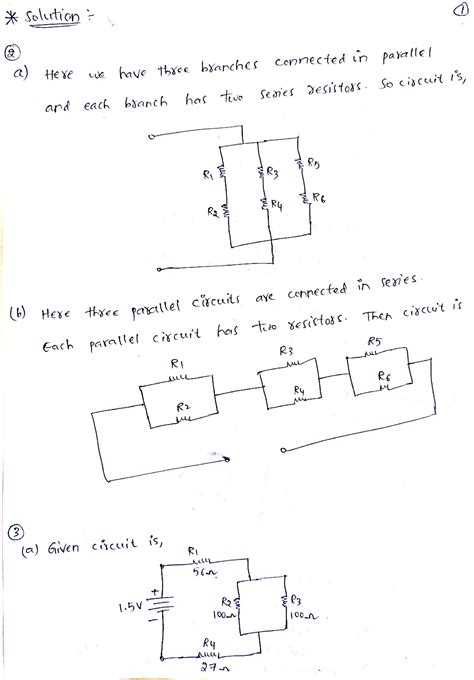 * Solution :-
①
②
a) Here we have three branches connected in parallel
and each branch has two series resistors. So circuit is,
R1 R3 R5
R2 R4 R6
(b) Here three parallel circuits are connected in series.
Each parallel circuit has two resistors. Then circuit is
R1 R3 R5
R2 R4 R6
③
(a) Given circuit is,
R1
56Ω
+
1.5V
-
R2 R3
100Ω 100Ω
R4
27Ω